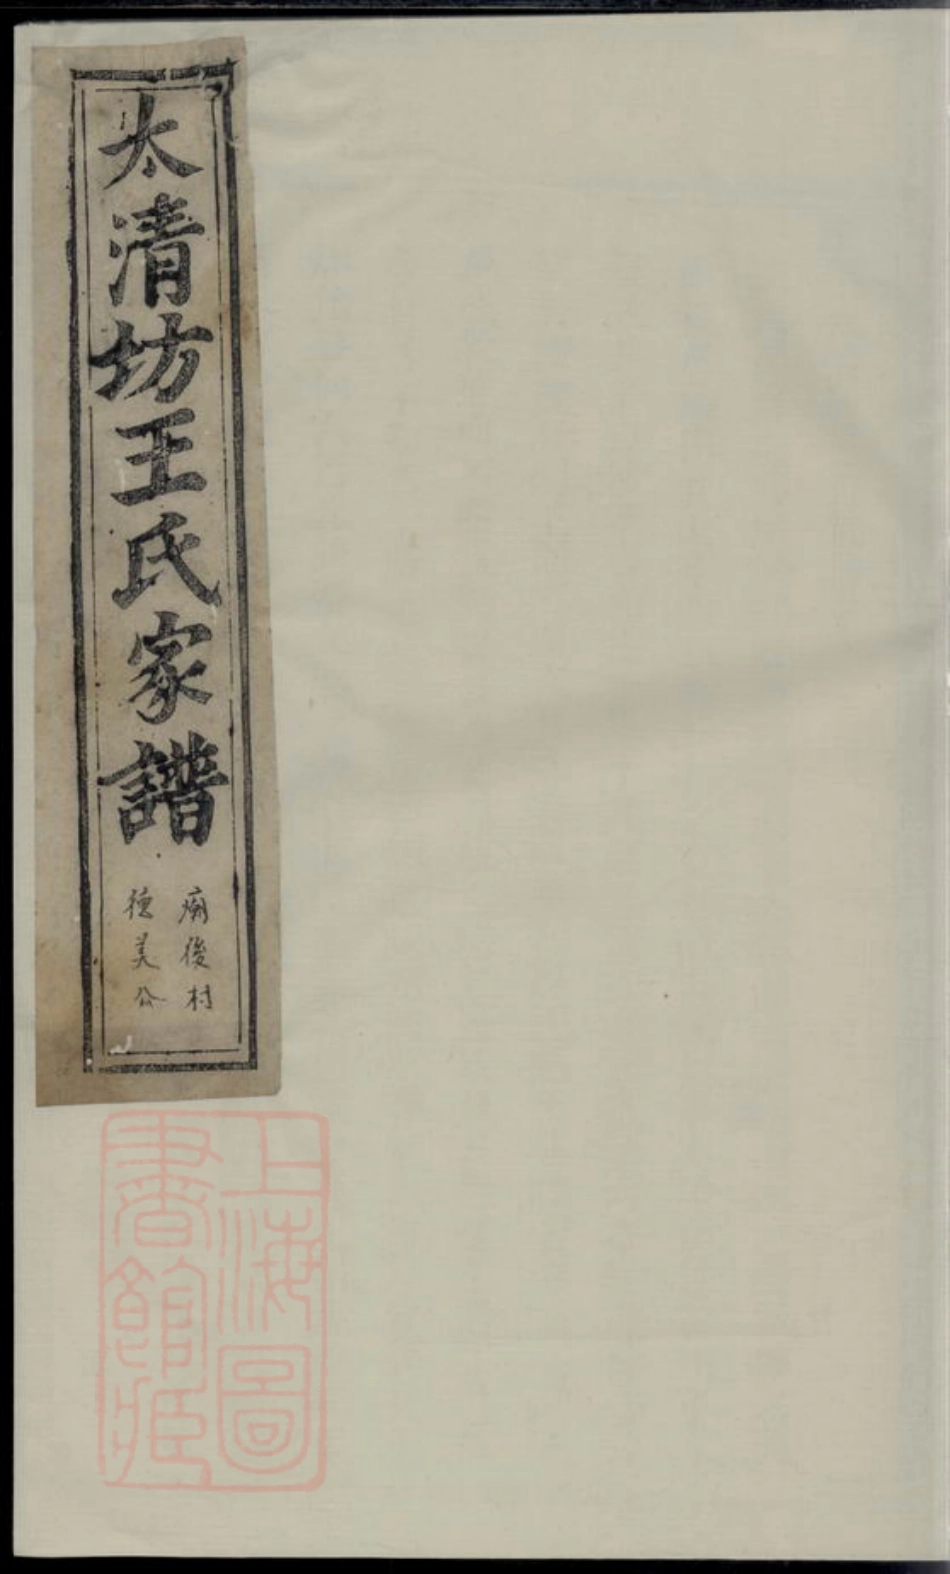 太清坊王氏家譜
廟後村
德美公
上海圖
書館藏